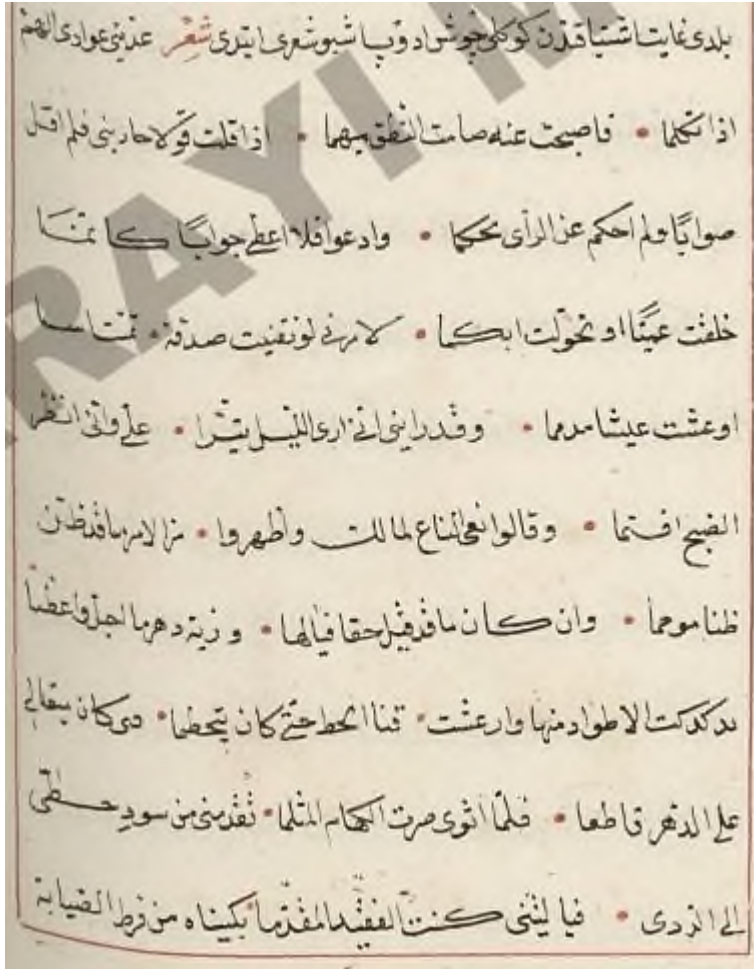 بلدى غايت اشتياقدن كوكلى جوش ادوب اشبو شعرى ايتدى شعر عذيتى عوادى الهم
اذا تكلما • فاصبحت عنه صامت النطق مبهما • اذا قلت قولا حاد بنى فلم اقل
صوابًا ولم احكم عن الرأى محكما • وادعوا فلا اعطى جوابًا كانما
خلقت عميًا او تحولت ابكما •
اوعشت عيشا مدمما • وقد رابنى انى ارى الليل نيرا • على وانى انظر
الصبح اقتما • وقالوا نعى الناع لمالك واظهروا • من الامر ما قد ظن
ظنا موهما • وان كان ما قد قيل حقا فيالها • وزية دهر ما اجل واعظما
تدكدكت الاطواد منها وارعشت • قنا الخط حتى كان يتحطما • كان
على الدهر قاطعا • فلما اثوى صرت الكهام المثلما • من سود حظى
الى الردى • فيا ليتنى كنت الفقيد المقدما بكيناه من فرط الصبابة